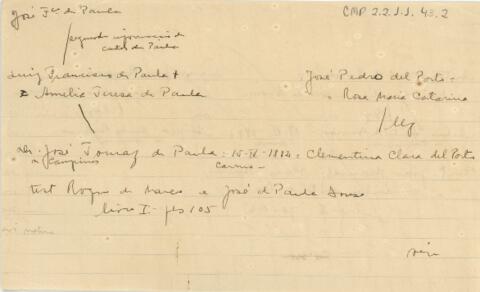 José Fco de Paula
CMP 2.2.1.1. 43.2
segundo informacões de
Carlos de Paula
Luiz Francisco de Paula +
José Pedro del Porto -
D Amelia Teresa de Paula
Rosa Maria Catarina
Dr. José Tomaz de Paula = 15-IV-1884 = Clementina Clara del Porto
n Campinas
test Roque de e José de Paula Souza
livro I - fls 105